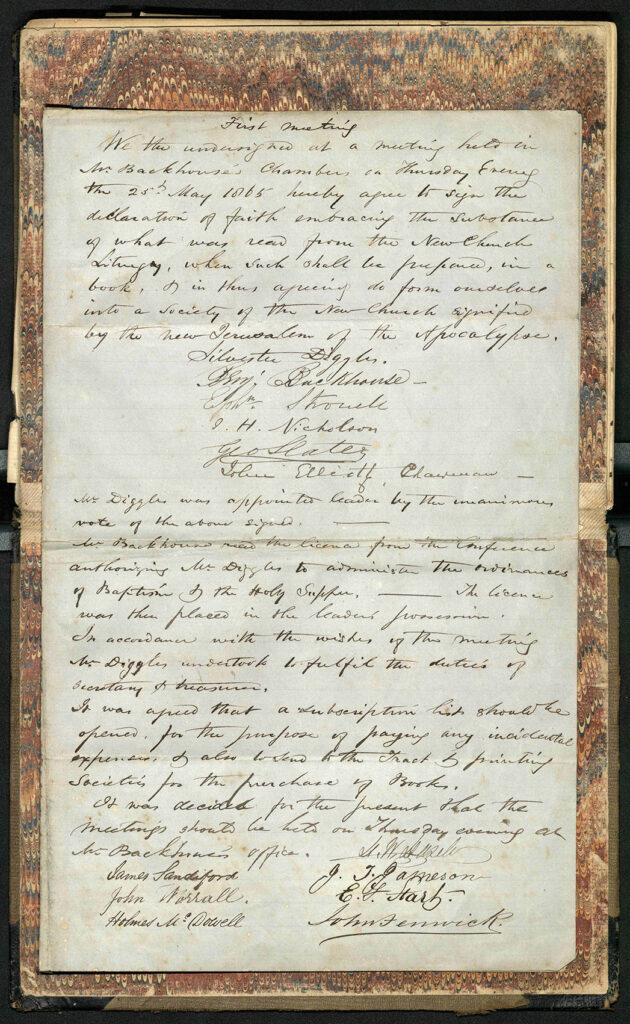 First meeting
We the undersigned at a meeting held in
Mr Backhouse's Chambers on Thursday Evening
the 25th May 1865 hereby agree to sign the
declaration of faith embracing the substance
of what was read from the New Church
Liturgy, when such shall be prepared, in a
book, & in thus agreeing do form ourselves
into a Society of the New Church signified
by the new Jerusalem of the Apocalypse.
Silvester Diggles.
Benj. Backhouse
Ephm
J. H. Nicholson
Geo Slater
John Elliott, Chairman
Mr Diggles was appointed leader by the unanimous
vote of the above signed.
Mr Backhouse read the licence from the Conference
authorizing Mr Diggles to administer the ordinances
of Baptism & the Holy Supper. The licence
was then placed in the leader's possession.
In accordance with the wishes of the meeting
Mr Diggles undertook to fulfil the duties of
secretary & treasurer.
It was agreed that a subscription list should be
opened, for the purpose of paying any incidental
expenses & also to send to the Tract & printing
Societies for the purchase of Books.
It was decided for the present that the
meetings should be held on Thursday evening at
Mr Backhouse's office.
James Sandeford
John Worrall.
Holmes Mc Dowell
J. T. Jameson
E. S. Hart.
John Fenwick.